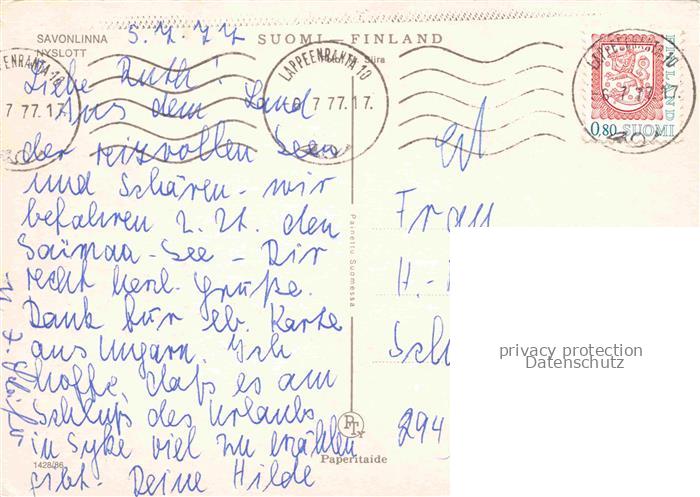 SAVONLINNA
NYSLOTT
SUOMI – FINLAND
5.7.77
LAPPEENRANTA 10
7 77.17.
0,80 SUOMI FINLAND
Liebe Ruth!
Aus dem Land
der reizvollen Seen
und Schären – wir
befahren z. Zt. den
Saimaa-See – Dir
recht herzl. Grüße.
Dank für lb. Karte
aus Ungarn. Ich
hoffe, daß es am
Schluß des Urlaubs
in Syke viel zu erzählen
gibt. Deine Hilde
Painettu Suomessa
Frau
H.-
Sch
294
privacy protection
Datenschutz
PTY
Paperitaide
1428/86